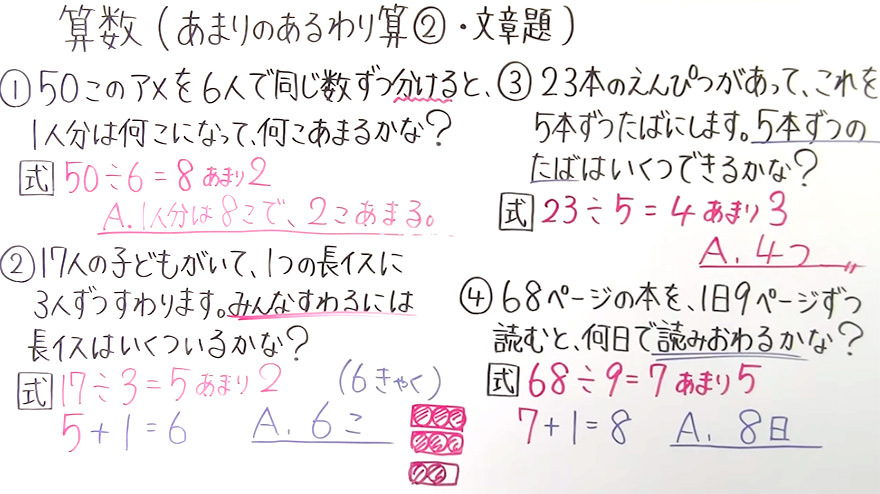 算数(あまりのあるわり算②・文章題)
①50このアメを6人で同じ数ずつ分けると、
1人分は何こになって、何こあまるかな?
式 50÷6=8あまり2
A.1人分は8こで、2こあまる。
②17人の子どもがいて、1つの長イスに
3人ずつすわります。みんなすわるには
長イスはいくついるかな?
式 17÷3=5あまり2 (6きゃく)
5+1=6 A. 6こ
③23本のえんぴつがあって、これを
5本ずつたばにします。5本ずつの
たばはいくつできるかな?
式 23÷5=4あまり3
A. 4つ
④68ページの本を、1日9ページずつ
読むと、何日で読みおわるかな?
式 68÷9=7あまり5
7+1=8 A. 8日